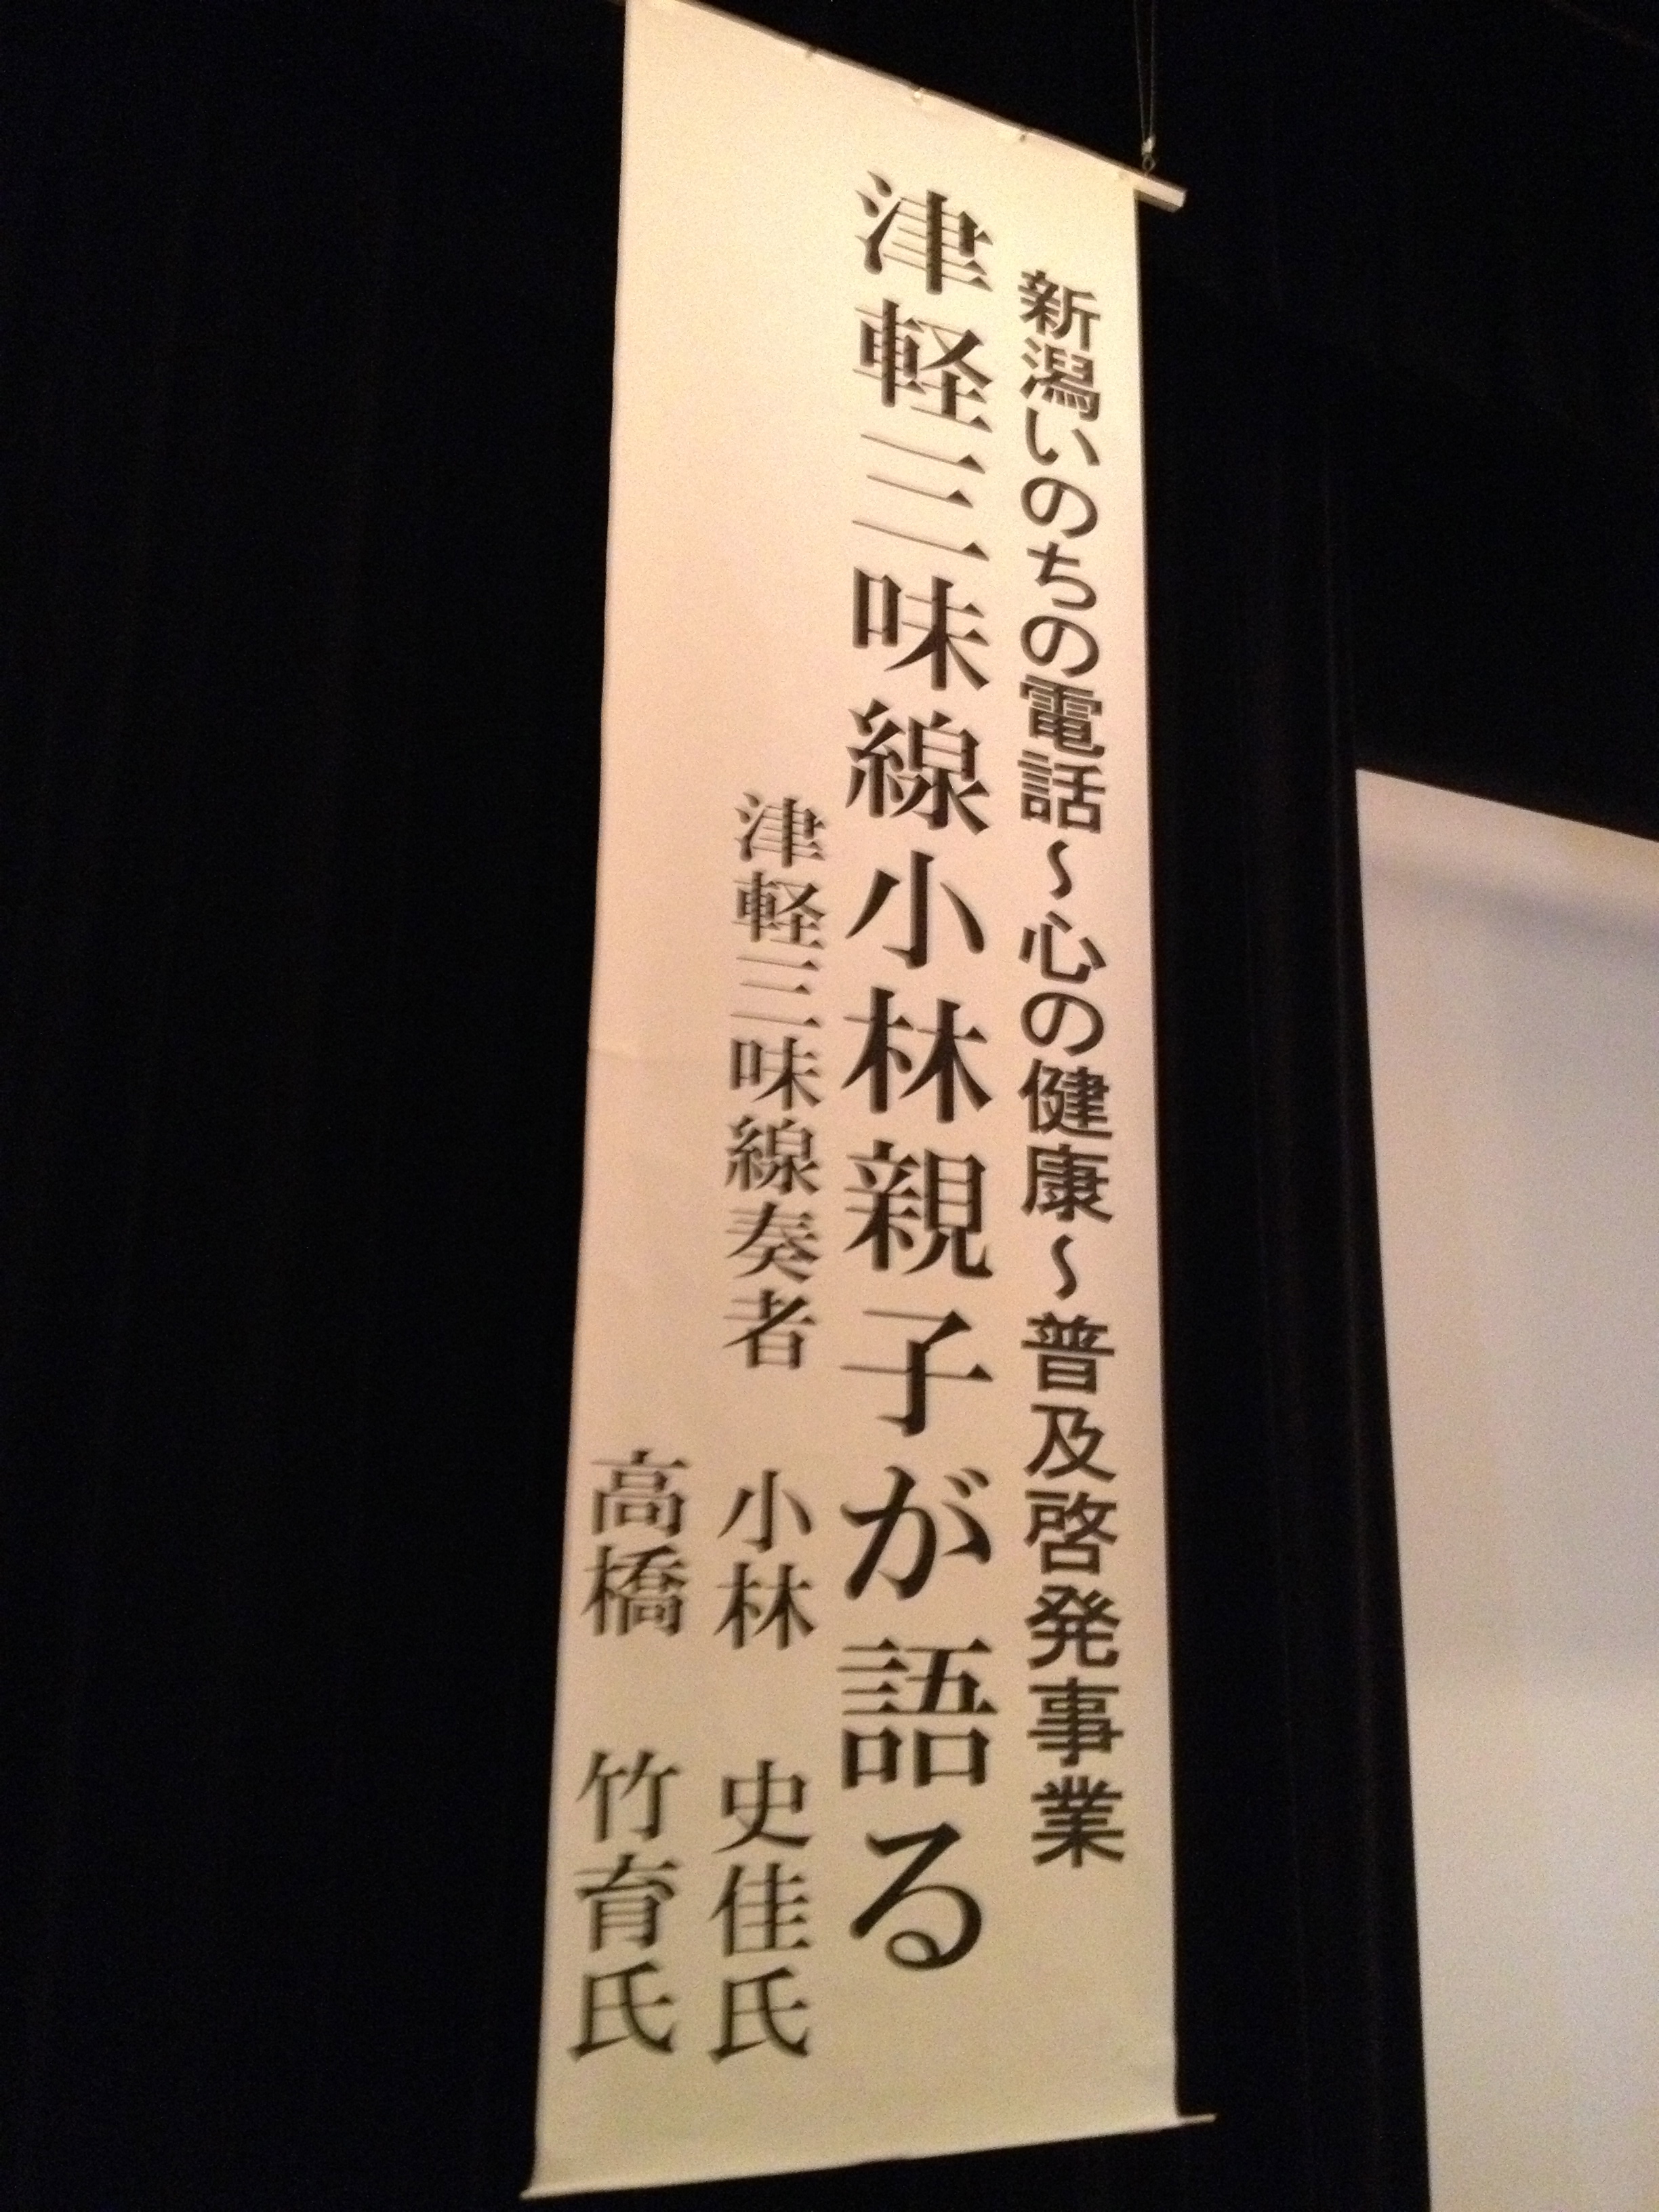 新潟いのちの電話~心の健康~普及啓発事業
津軽三味線小林親子が語る
津軽三味線奏者 小林 史佳氏
高橋 竹育氏